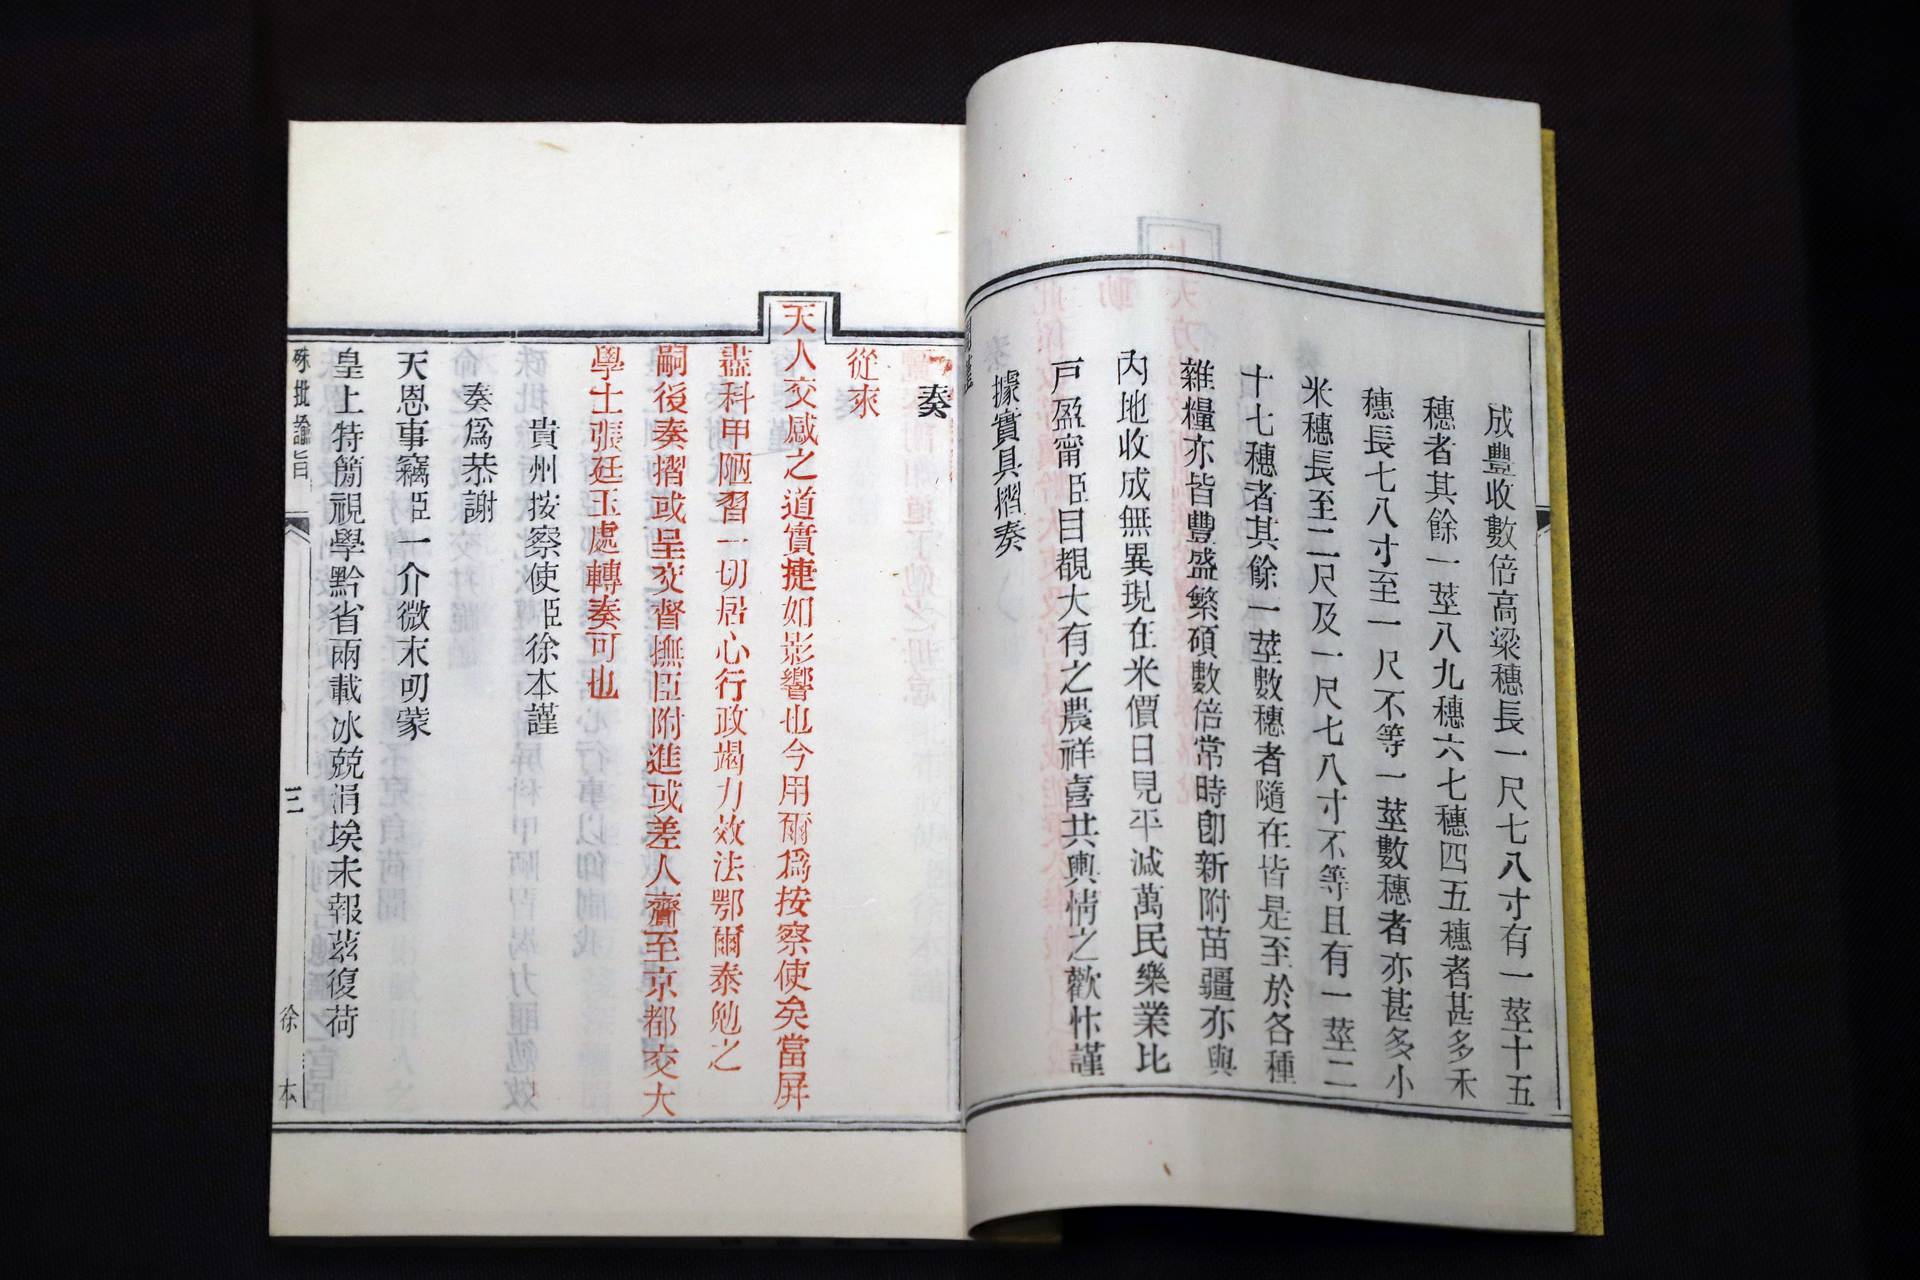 成豐收數倍高粱穗長一尺七八寸有一莖十五
穗者其餘一莖八九穗六七穗四五穗者甚多禾
穗長七八寸至一尺不等一莖數穗者亦甚多小
米穗長至二尺及一尺七八寸不等且有一莖二
十七穗者其餘一莖數穗者隨在皆是至於各種
雜糧亦皆豐盛繁碩數倍常時卽新附苗疆亦與
內地收成無異現在米價日見平減萬民樂業比
戸盈甯臣目覩大有之農祥喜共輿情之歡忭謹
據實具摺奏
奏
從來
天人交感之道實捷如影響也今用爾爲按察使矣當屏
盡科甲陋習一切居心行政竭力效法鄂爾泰勉之
嗣後奏摺或呈交督撫臣附進或差人齎至京都交大
學士張廷玉處轉奏可也
貴州按察使臣徐本謹
奏爲恭謝
天恩事竊臣一介微末叨蒙
皇上特簡視學黔省兩載冰兢涓埃未報茲復荷
硃批諭旨
三
徐
本